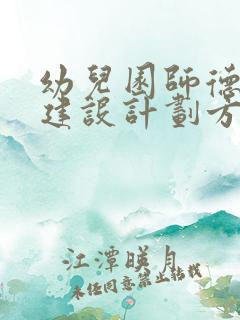 幼兒園師德
建設計劃方
江潭映月
未經同意禁止轉載